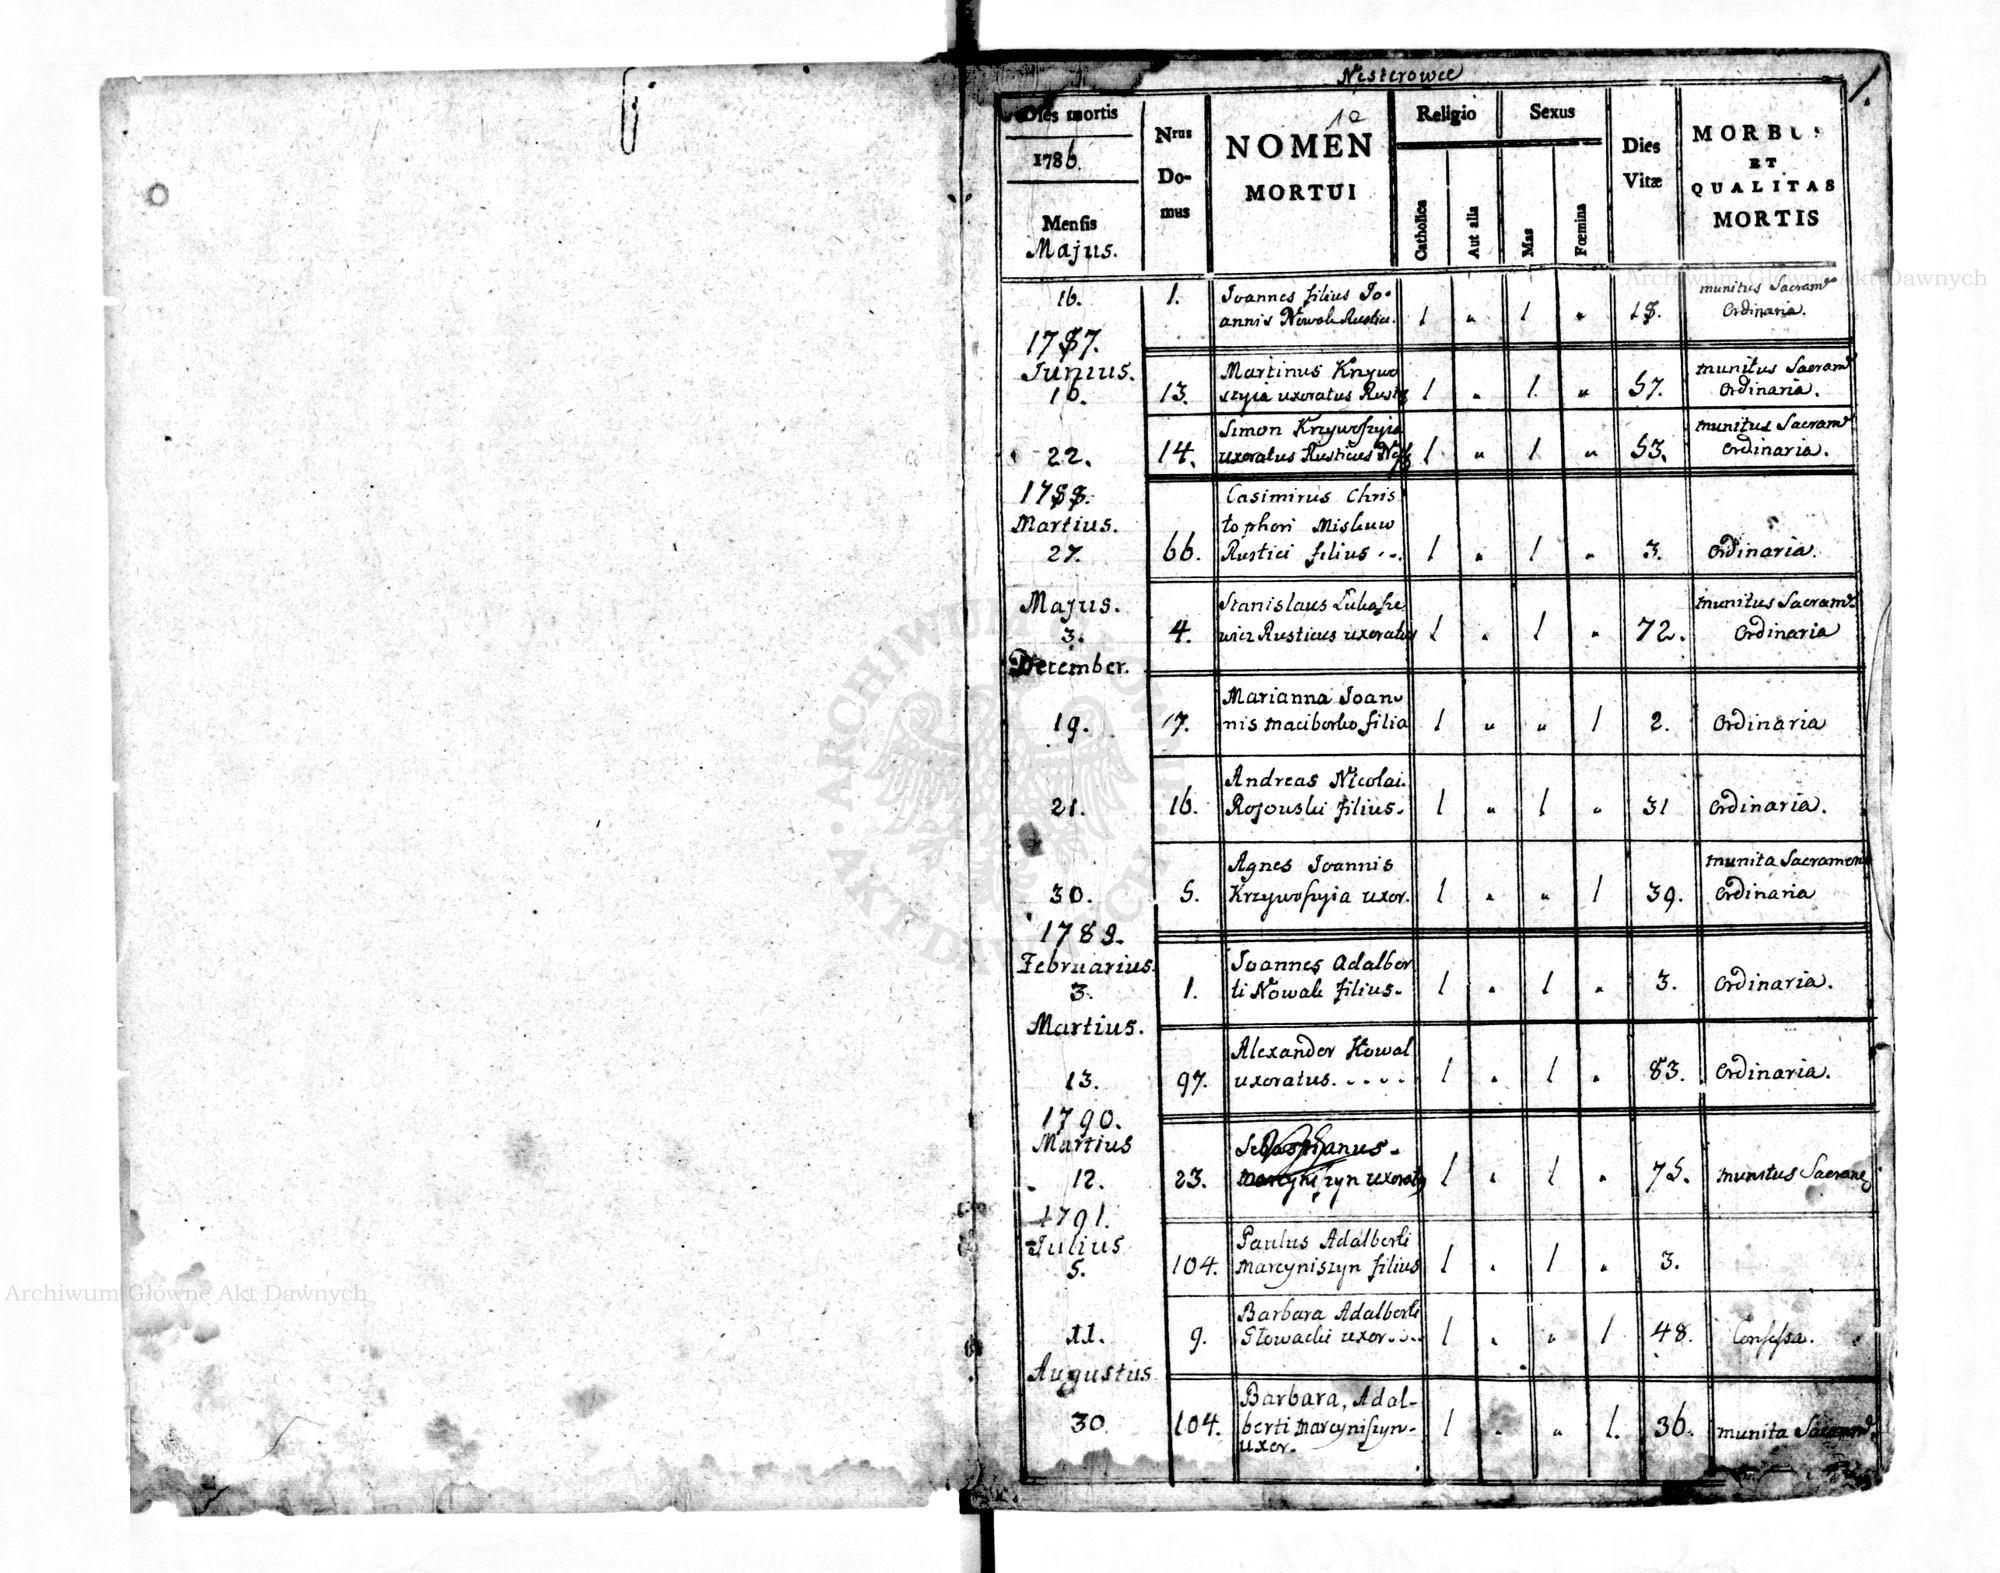 Nesterowce
1.
Dies mortis
1786.
Mensis
Majus.
Nrus
Do-
mus
10
NOMEN
MORTUI
Religio
Catholica
Aut alia
Sexus
Mas
Fœmina
Dies
Vitæ
MORBUS
ET
QUALITAS
MORTIS
Joannes filius Jo- munitus Sacramt
16. 1. annis Nowak Rustici. 1 " 1 " 18. Ordinaria.
1787.
Junius. Martinus Krzywo munitus Sacramt
16. 13. szyia uxoratus 1 " 1. " 57. Ordinaria.
Simon Krzywoszyia munitus Sacramt
22. 14. uxoratus Rusticus 1 " 1 " 53. Ordinaria.
1788. Casimirus Chris
Martius. tophori Miskuw
27. 66. Rustici filius 1 " 1 " 3. Ordinaria.
Majus. Stanislaus Łukasze munitus Sacramt
3. 4. wicz Rusticus uxoratus 1 " 1 " 72. Ordinaria
December.
Marianna Joan-
19. 17. nis Maciborko filia 1 " " 1 2. Ordinaria
Andreas Nicolai
21. 16. filius. 1 " 1 " 31 Ordinaria.
Agnes Joannis munita Sacrament
30. 5. Krzywoszyia uxor. 1 " " 1 39. Ordinaria
1789.
Februarius. Joannes Adalber
3. 1. ti Nowak filius. 1 " 1 " 3. Ordinaria.
Martius.
Alexander Kowal
13. 97. uxoratus. . . . . 1 " 1 " 83. Ordinaria.
1790.
Martius Sebastianus.
12. 23. Marcyniszyn uxoratus 1 " 1 " 75. munitus
1791.
Julius Paulus Adalberti
5. 104. Marcyniszyn filius 1 " 1 " 3.
Barbara Adalberti
11. 9. Słowacki uxor . . . 1 " " 1 48. Confessa.
Augustus
Barbara, Adal-
30 104. berti Marcyniszyn- 1 " " 1. 36. munita
uxor.
Archiwum Główne Akt Dawnych
Archiwum Główne Akt Dawnych
ARCHIWUM GŁÓWNE · AKT DAWNYCH ·